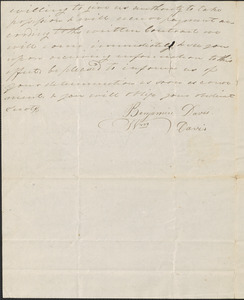 willing to give us authority to take
possession & will secure payment ac-
cording to the written Contract we
will come immediately here you
upon receiving information to this
effect, be pleased to inform us of
your determination as soon as conv-
enient & you will oblige your obedient
Benjamin Davis
Wm Davis